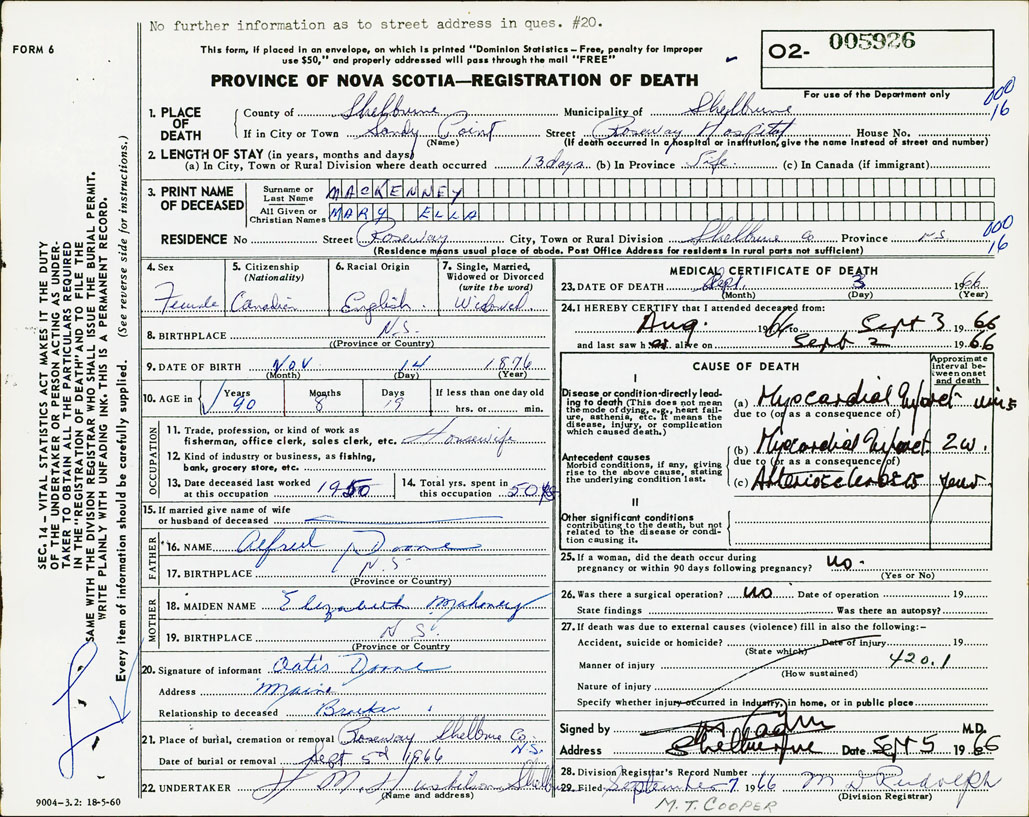 No further information as to street address in ques. #20.
FORM 6
This form, if placed in an envelope, on which is printed "Dominion Statistics – Free, penalty for improper
use $50," and properly addressed will pass through the mail "FREE"
PROVINCE OF NOVA SCOTIA—REGISTRATION OF DEATH
O2- 005926
For use of the Department only
000
16
1. PLACE OF DEATH
County of Shelburne Municipality of Shelburne
If in City or Town Sandy Point Street Roseway Hospital House No.
(Name) (If death occurred in a hospital or institution, give the name instead of street and number)
2. LENGTH OF STAY (in years, months and days)
(a) In City, Town or Rural Division where death occurred 13 days (b) In Province Life (c) In Canada (if immigrant)
3. PRINT NAME OF DECEASED
Surname or Last Name MACKENNEY
All Given or Christian Names MARY ELLA
RESIDENCE No Street Roseway City, Town or Rural Division Shelburne Co Province N S
(Residence means usual place of abode. Post Office Address for residents in rural parts not sufficient)
000
16
4. Sex Female
5. Citizenship (Nationality) Canadian
6. Racial Origin English
7. Single, Married, Widowed or Divorced (write the word) Widowed
8. BIRTHPLACE N.S.
(Province or Country)
9. DATE OF BIRTH Nov 14 1876
(Month) (Day) (Year)
10. AGE in Years 90 Months 8 Days 19 If less than one day old hrs. or min.
OCCUPATION
11. Trade, profession, or kind of work as
fisherman, office clerk, sales clerk, etc. Housewife
12. Kind of industry or business, as fishing,
bank, grocery store, etc.
13. Date deceased last worked at this occupation 1950
14. Total yrs. spent in this occupation 50 yrs
15. If married give name of wife
or husband of deceased
FATHER
16. NAME Alfred Doane
17. BIRTHPLACE N.S
(Province or Country)
MOTHER
18. MAIDEN NAME Elizabeth Mahoney
19. BIRTHPLACE N S.
(Province or Country)
20. Signature of informant Doane
Address Maine
Relationship to deceased Brother
21. Place of burial, cremation or removal Roseway Shelburne Co. N.S.
Date of burial or removal Sept 5th 1966
22. UNDERTAKER
(Name and address)
9004-3.2: 18-5-60
MEDICAL CERTIFICATE OF DEATH
23. DATE OF DEATH Sept. 3 1966
(Month) (Day) (Year)
24. I HEREBY CERTIFY that I attended deceased from:
Aug. 1966 to Sept 3 1966
and last saw h er alive on Sept 2 1966
CAUSE OF DEATH
Approximate interval between onset and death
I
Disease or condition directly leading to death (This does not mean the mode of dying, e.g., heart failure, asthenia, etc. It means the disease, injury, or complication which caused death.)
(a) Myocardial Infarct mins
due to (or as a consequence of)
Antecedent causes
Morbid conditions, if any, giving rise to the above cause, stating the underlying condition last.
(b) Myocardial Infarct 2 w.
due to (or as a consequence of)
(c) Arteriosclerosis years
II
Other significant conditions
contributing to the death, but not related to the disease or condition causing it.
25. If a woman, did the death occur during
pregnancy or within 90 days following pregnancy? no.
(Yes or No)
26. Was there a surgical operation? no Date of operation 19
State findings Was there an autopsy?
27. If death was due to external causes (violence) fill in also the following:–
Accident, suicide or homicide? Date of injury 19
(State which)
Manner of injury 420.1
(How sustained)
Nature of injury
Specify whether injury occurred in industry, in home, or in public place
Signed by M.D.
Address Shelburne Date Sept 5 1966
28. Division Registrar's Record Number
29. Filed September 7 1966 M D Rudolph
(Division Registrar)
M.T. COOPER
SEC. 14 – VITAL STATISTICS ACT MAKES IT THE DUTY
OF THE UNDERTAKER OR PERSON ACTING AS UNDER-
TAKER TO OBTAIN ALL THE PARTICULARS REQUIRED
IN THE "REGISTRATION OF DEATH" AND TO FILE THE
SAME WITH THE DIVISION REGISTRAR WHO SHALL ISSUE THE BURIAL PERMIT.
WRITE PLAINLY WITH UNFADING INK. THIS IS A PERMANENT RECORD.
Every item of information should be carefully supplied. (See reverse side for instructions.)